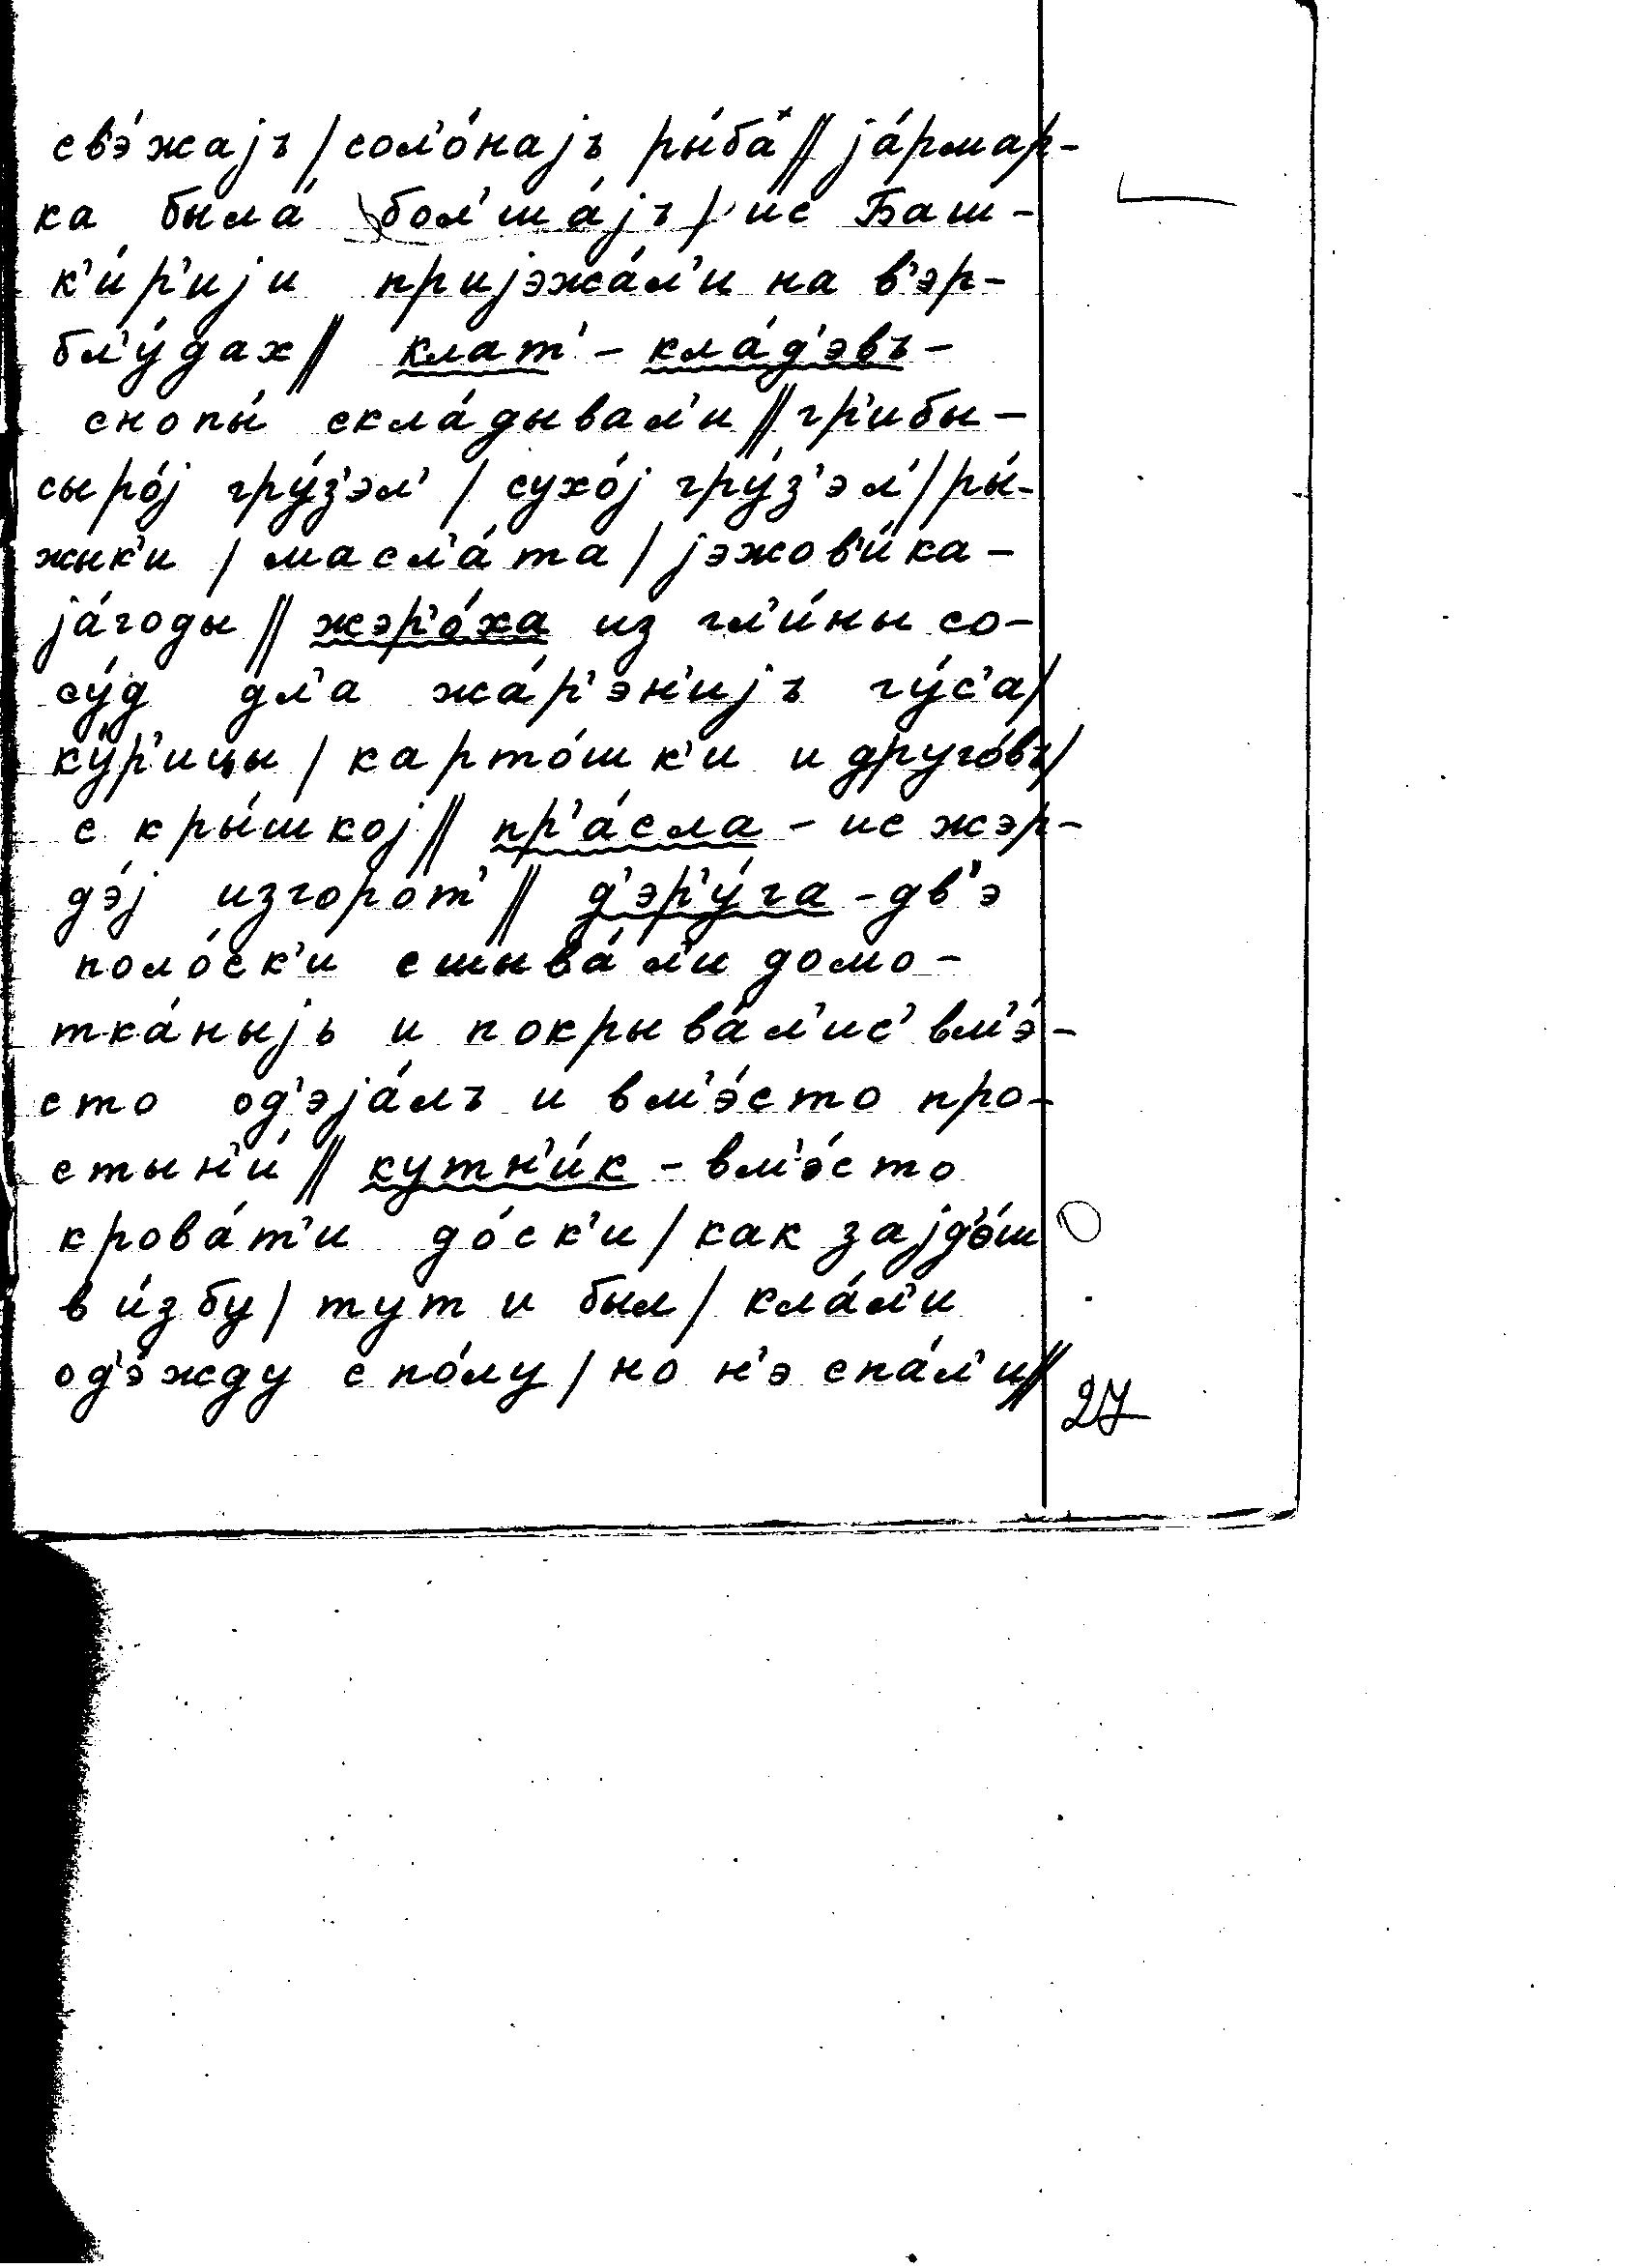 св'э́жаjъ / сол'о́наjъ ры́ба // jа́рмар-
ка была́ бол'ша́jъ / ис Баш-
к'и́р'иjи приjэжа́л'и на в'эр-
бл'у́дах // клат' - кла́д'эвъ -
снопы́ скла́дывал'и // гр'ибы -
сыро́j гру́з'эл' / сухо́j гру́з'эл' / ры́-
жык'и / масл'а́та / jэжов'и́ка -
jа́годы // жэр'о́ха из гл'и́ны со-
су́д дл'а жа́р'эн'иjъ гу́с'а /
ку́р'ицы / карто́шк'и и друго́въ /
с кры́шкоj // пр'а́сла - ис жэр-
дэ́j изгоро́т' // д'эр'у́га - дв'э
поло́ск'и сшыва́л'и домо-
тка́ныjь и покрыва́л'ис' вм'э́-
сто од'эjа́лъ и вм'э́сто про-
стын'и́ // кутн'и́к - вм'э́сто
крова́т'и до́ск'и / как заjд'о́ш
в и́збу / тут и был / кла́л'и
од'э́жду с по́лу / но н'э спа́л'и //
27